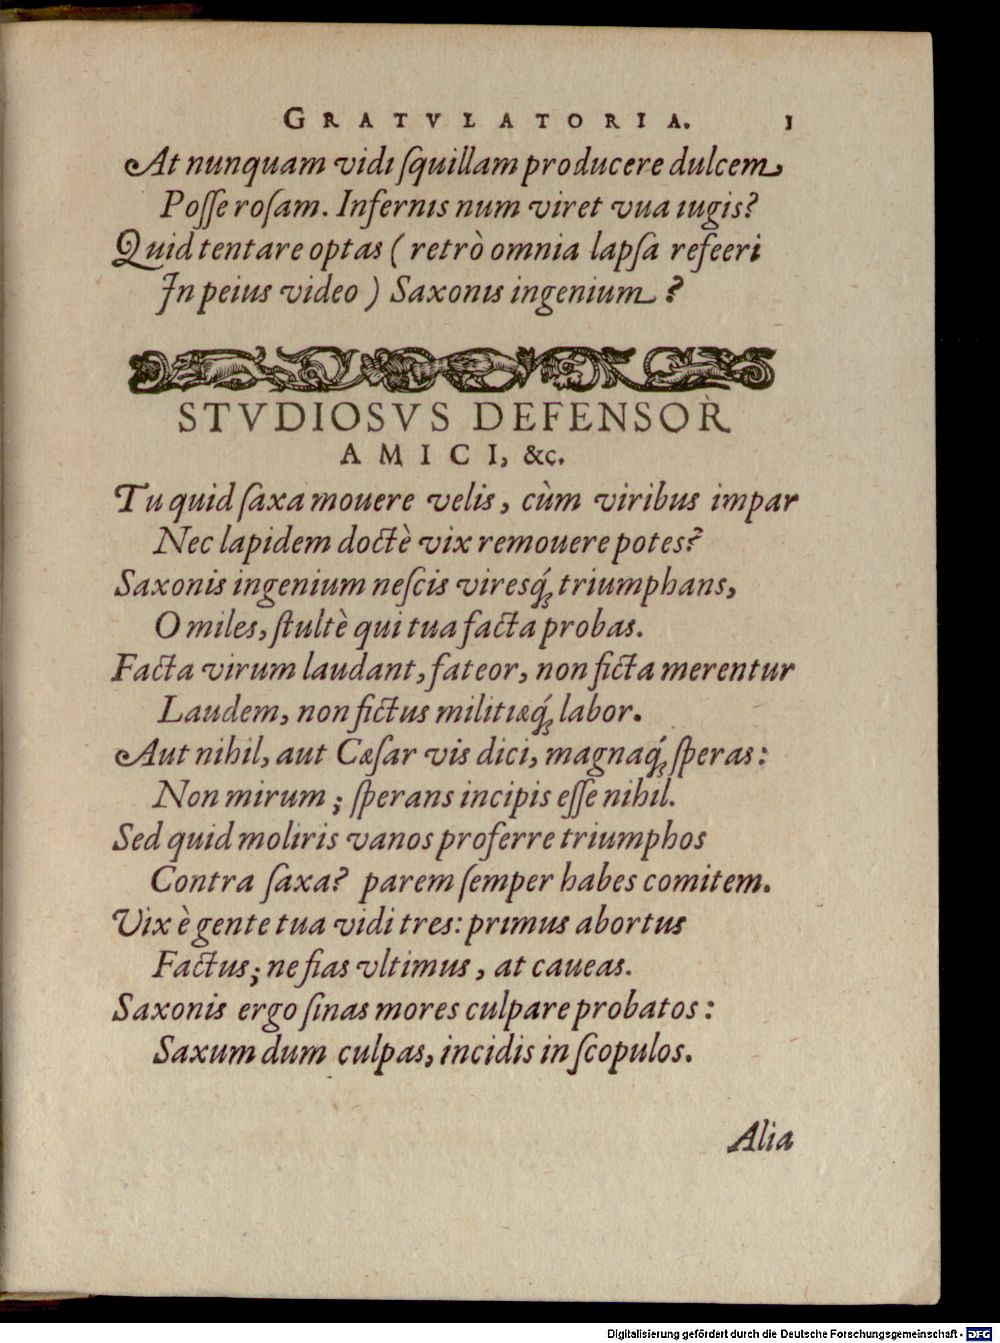 GRATVLATORIA. 1
At nunquam vidi ſquillam producere dulcem
Poſſe roſam. Infernis num viret vua iugis?
Quid tentare optas (retrò omnia lapſa refeeri
In peius video) Saxonis ingenium?
STVDIOSVS DEFENSOR
AMICI, &c.
Tu quid ſaxa mouere velis, cùm viribus impar
Nec lapidem doctè vix remouere potes?
Saxonis ingenium neſcis viresq́; triumphans,
O miles, ſtultè qui tua facta probas.
Facta virum laudant, fateor, non ficta merentur
Laudem, non fictus militiæq́; labor.
Aut nihil, aut Cæſar vis dici, magnaq́; ſperas:
Non mirum; ſperans incipis eſſe nihil.
Sed quid moliris vanos proferre triumphos
Contra ſaxa? parem ſemper habes comitem.
Vix è gente tua vidi tres: primus abortus
Factus; ne fias vltimus, at caueas.
Saxonis ergo ſinas mores culpare probatos:
Saxum dum culpas, incidis in ſcopulos.
Alia
Digitalisierung gefördert durch die Deutsche Forschungsgemeinschaft - DFG